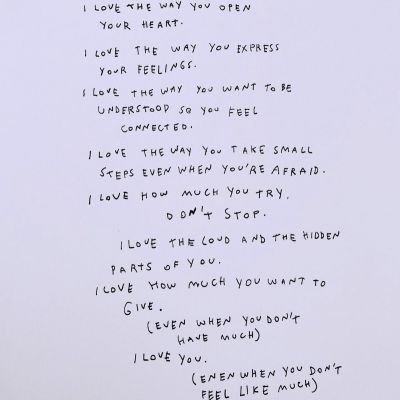 I LOVE THE WAY YOU OPEN
YOUR HEART.
I LOVE THE WAY YOU EXPRESS
YOUR FEELINGS.
I LOVE THE WAY YOU WANT TO BE
UNDERSTOOD SO YOU FEEL
CONNECTED.
I LOVE THE WAY YOU TAKE SMALL
STEPS EVEN WHEN YOU'RE AFRAID.
I LOVE HOW MUCH YOU TRY.
DON'T STOP.
I LOVE THE LOUD AND THE HIDDEN
PARTS OF YOU.
I LOVE HOW MUCH YOU WANT TO
GIVE.
(EVEN WHEN YOU DON'T
HAVE MUCH)
I LOVE YOU.
(ENEN WHEN YOU DON'T
FEEL LIKE MUCH)